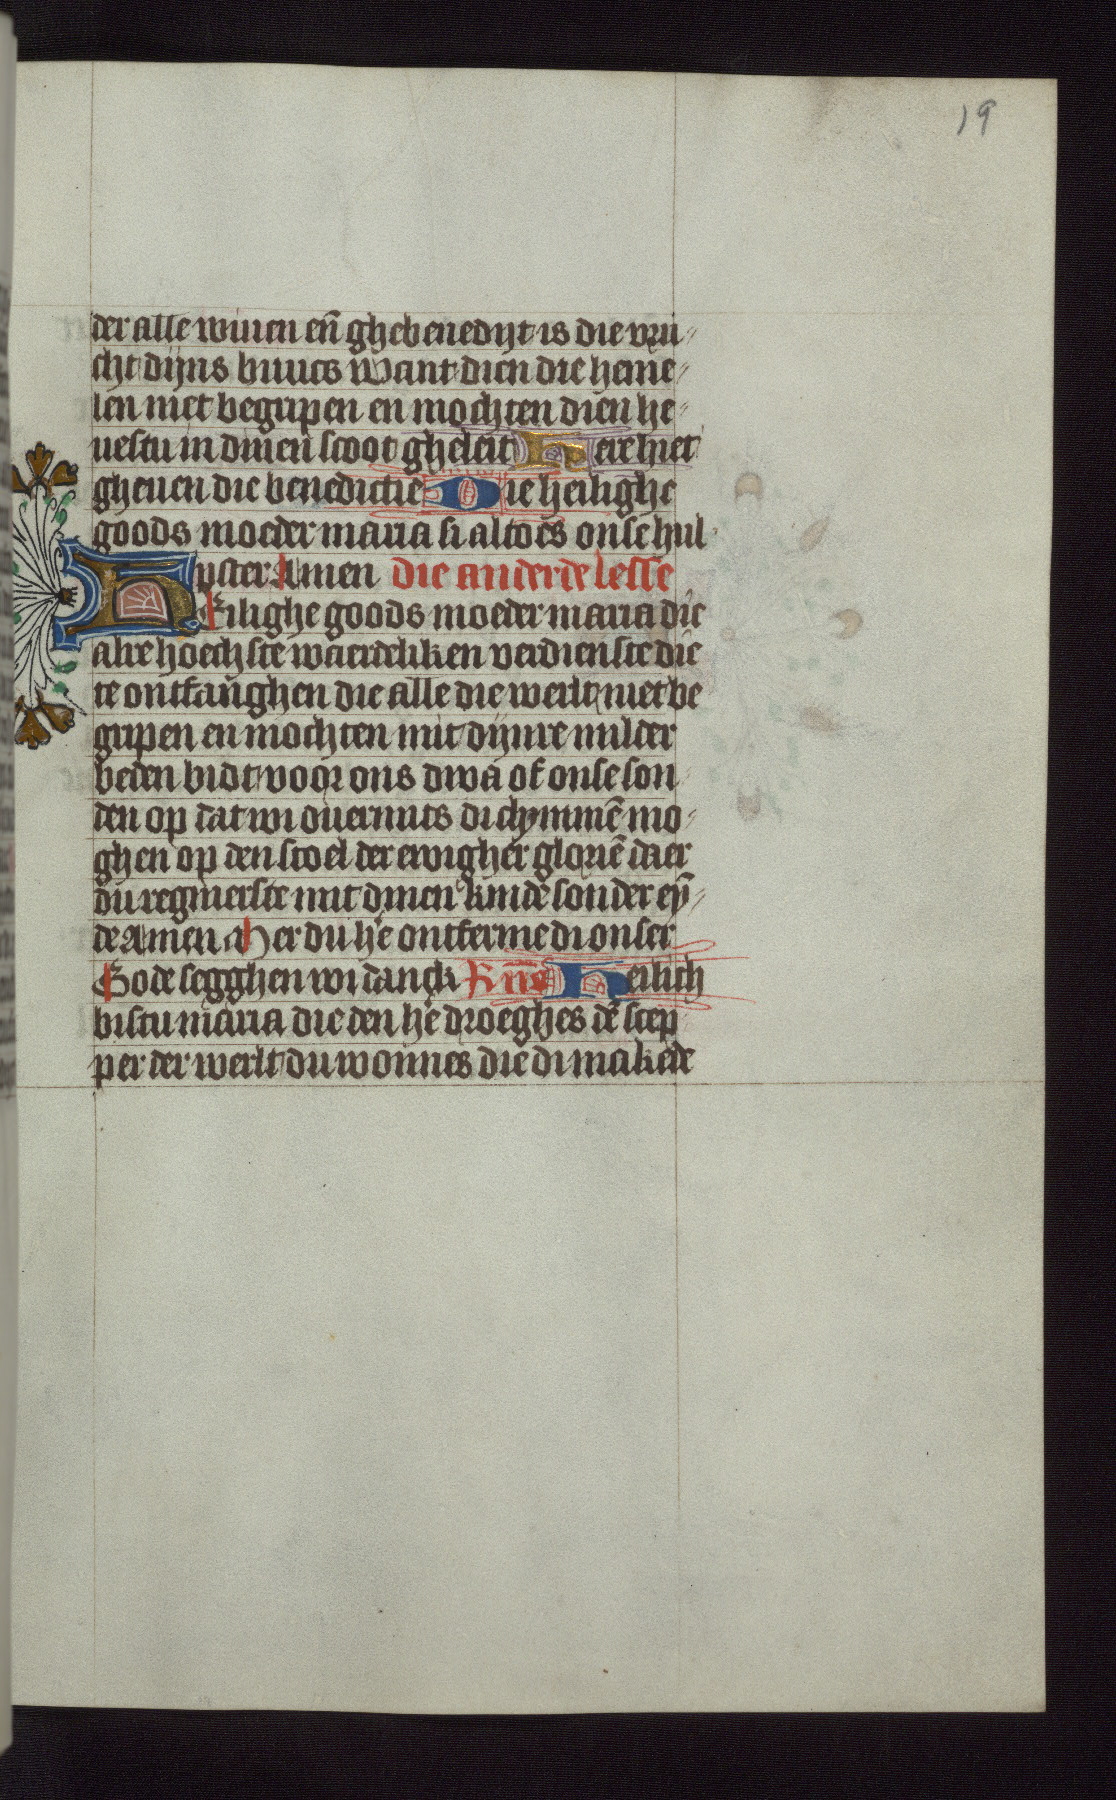 19
der alle wiuen en̄ ghebenedijt is die vru
cht dijns buucs want dien die heme
len niet begripen en mochten dien he
uestu in dinen scoot gheleit Here hiet
gheuen die benedictie Die heilighe
goods moeder maria si altoes onse hul
pster Amen die anderde lesse
Heilighe goods moeder maria die
alre hoechste waerdeliken verdienste die
te ontfanghen die alle die werlt niet be
gripen en mochten mit dijnre milder
beden bidt voor ons dwa of onse son
den op dat wi ouermits di clymmē mo
ghen op den stoel der ewigher gloriē daer
du regnierste mit dinen kinde sonder eyn̄
de Amen Mer du he ontferme di onser
Gode segghen wi danck Heilich
bistu maria die den hē droeghes dē scep
per der werlt du wonnes die di makede